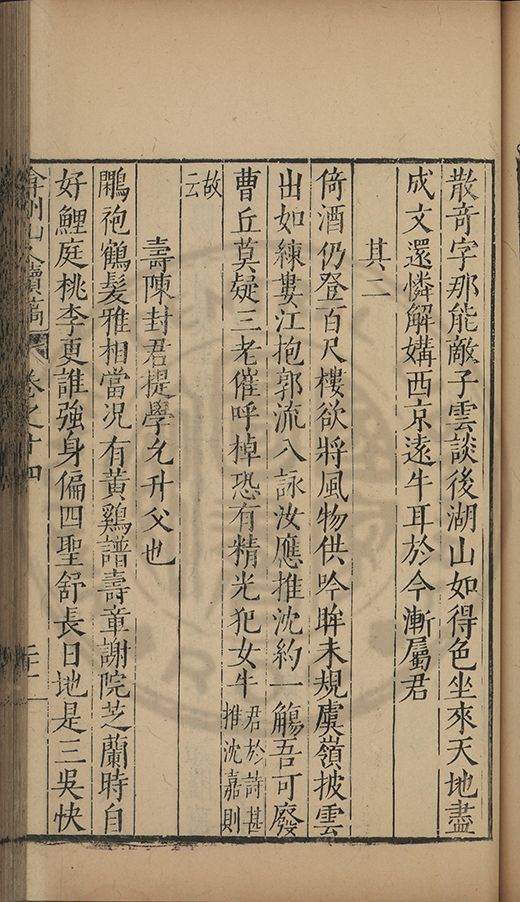 散奇字那能敵子雲談後湖山如得色坐來天地盡
成文還憐解媾西京遠牛耳於今漸屬君
其二
倚酒仍登百尺樓欲將風物供吟眸未規虞嶺披雲
出如練婁江抱郭流入詠汝應推沈約一觴吾可廢
曹丘莫疑三老催呼棹恐有精光犯女牛
君於詩甚
推沈嘉則
故
云
壽陳封君提學允升父也
鵰袍鶴髮雅相當况有黃鷄譜壽章謝院芝蘭時自
好鯉庭桃李更誰強身偏四聖舒長日地是三吳快
弇州山人續稿
卷之十四
二十二